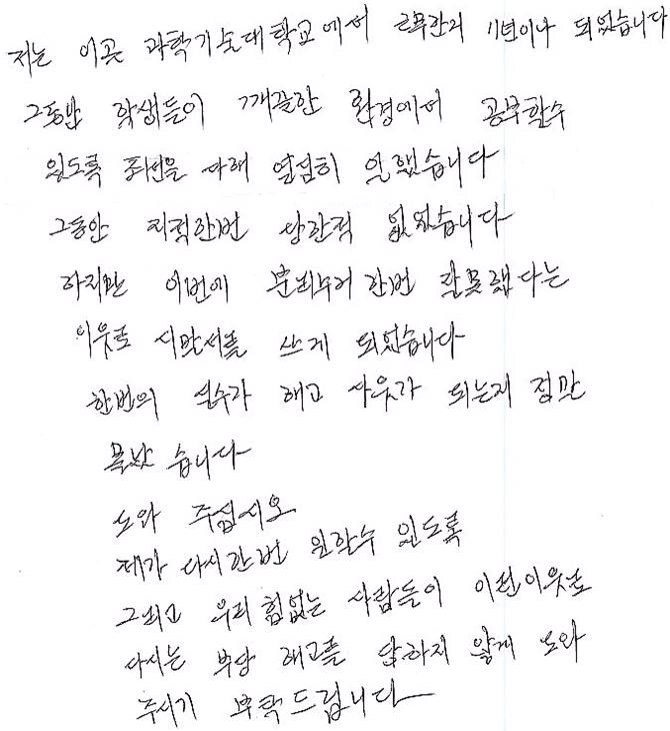 저는 이곳 과학기술대학교에서 근무한지 11년이나 되었습니다
그동안 학생들이 깨끌한 환경에서 공부할수
있도록 최선을 다해 열심히 일했습니다
그동안 지적한번 당한적 없었습니다
하지만 이번에 분리수거 한번 잘못했다는
이웃로 시말서를 쓰게 되었습니다
한번의 실수가 해고 사웃가 되는지 정말
몰랐습니다
도와 주십시오
제가 다시한번 일할수 있도록
그리고 우리 힘없는 사람들이 이런이웃로
다시는 부당 해고를 당하지 않게 도와
주시기 부탁드립니다